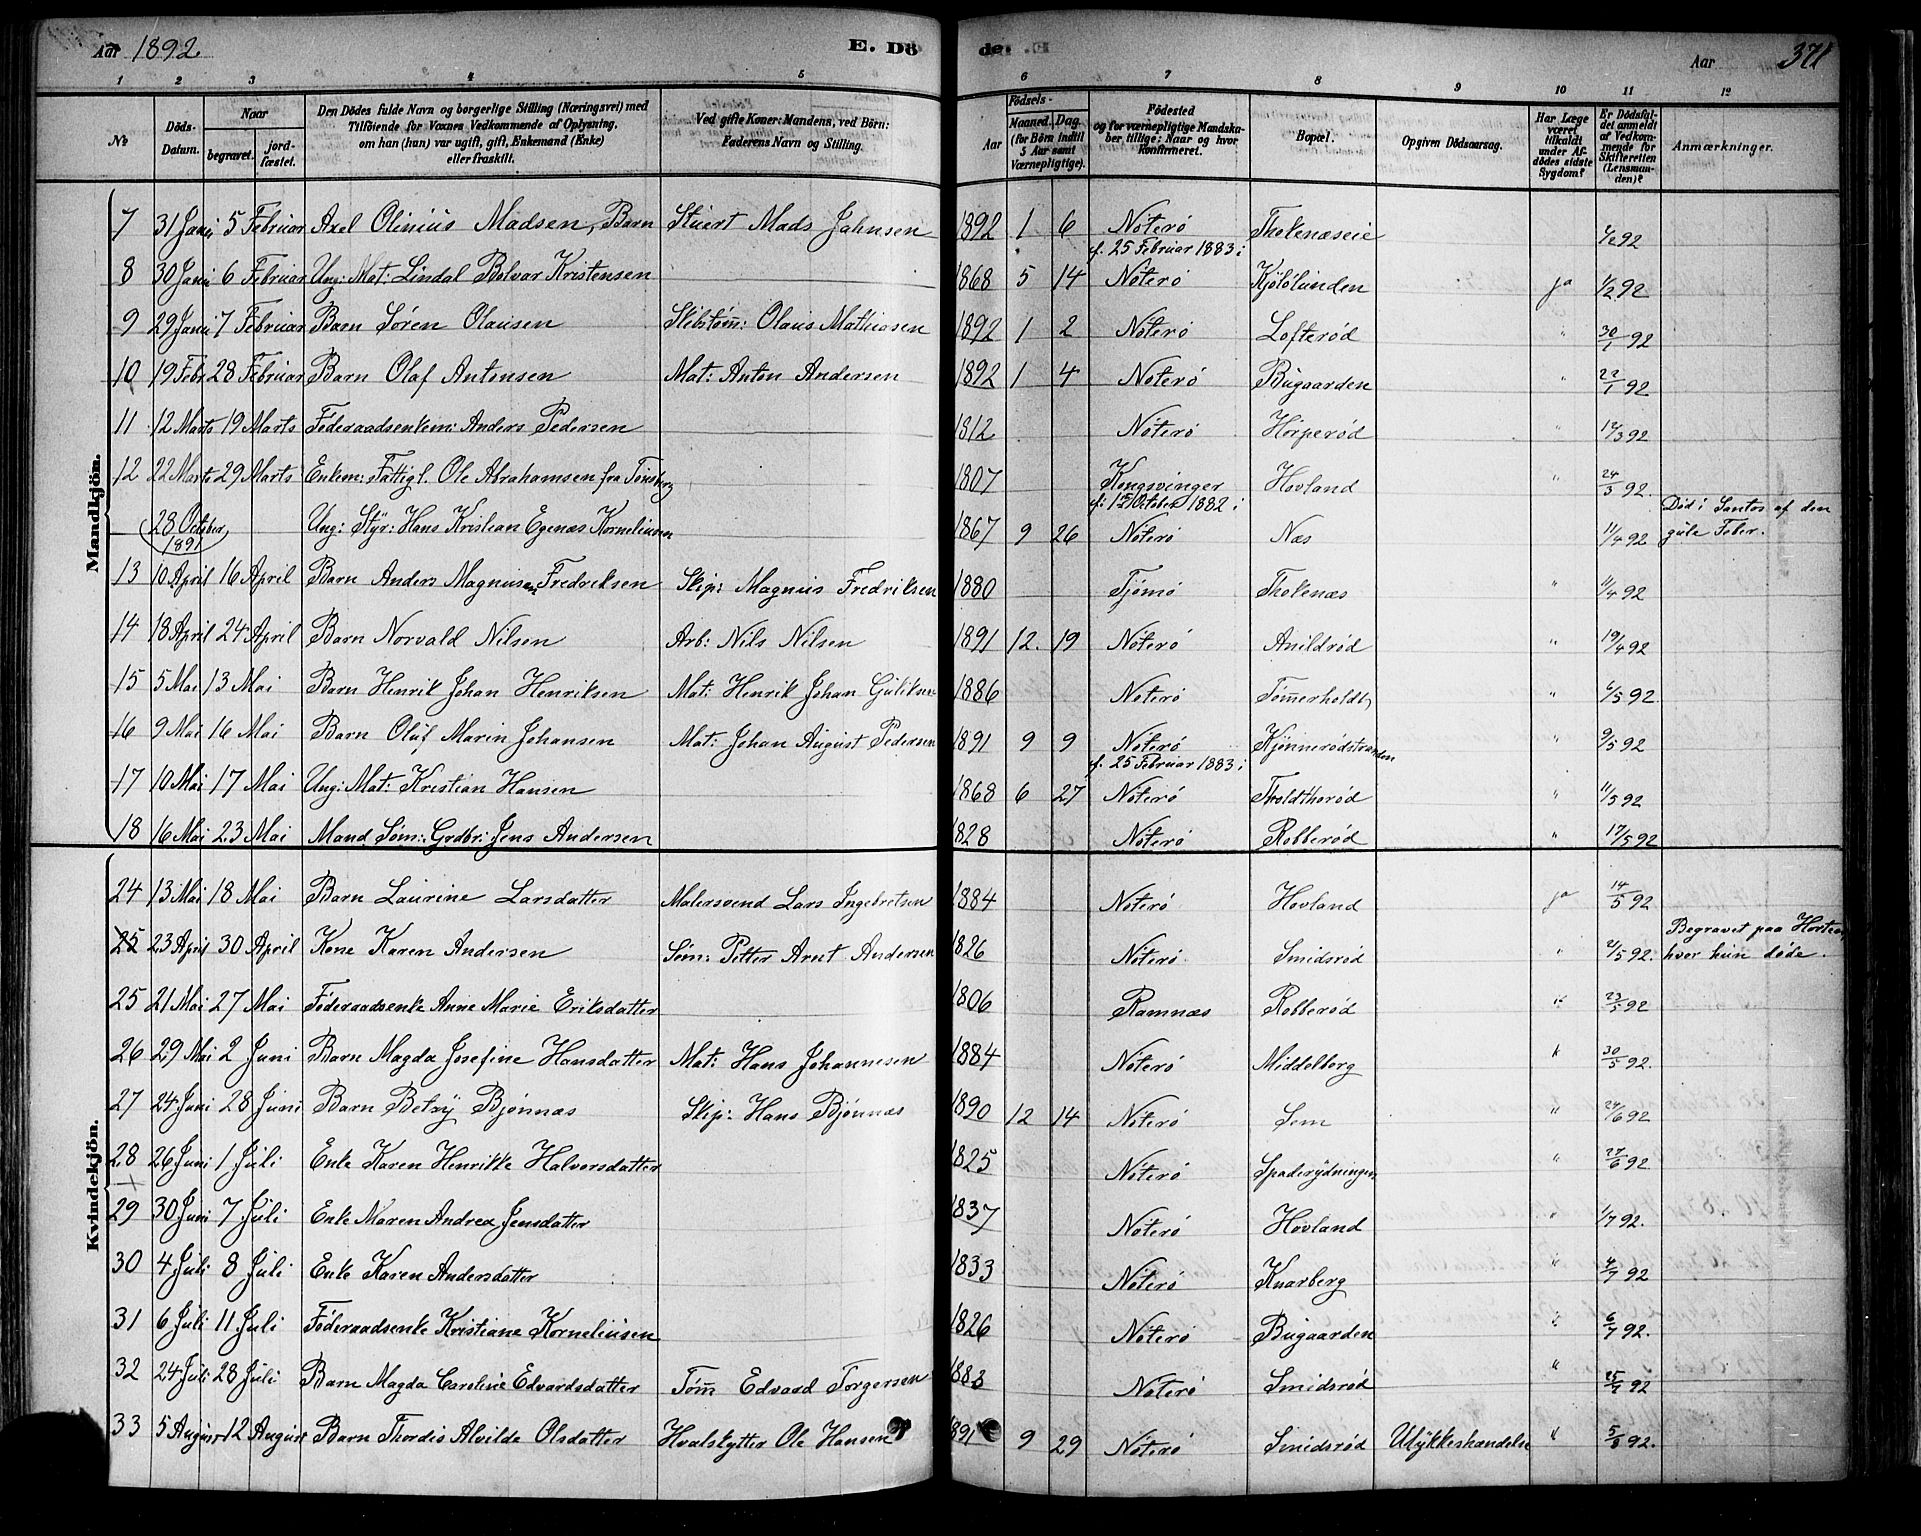 Aar 1892. E. Dö de. E. Aar 371
1 2 3 4 5 6 7 8 9 10 11 12
№ Döds-Datum. Naar begravet. jordfæstet. Den Dödes fulde Navn og borgerlige Stilling (Næringsvei) med Tilföiende for Voxnes Vedkommende af Oplysning, om han (hun) var ugift, gift, Enkemand (Enke) eller fraskilt. Ved gifte Koner: Mandens, ved Börn: Faderens Navn og Stilling. Aar Födsels- Maaned. Dag. (for Börn indtil 5 Aar samt Værnepligtige). Födested og for værnepligtige Mandskaber tillige: Naar og hvor Konfirmeret. Bopæl. Opgiven Dödsaarsag. Har Læge været tilkaldt under Afdödes sidste Sygdom? Er Dödsfaldet anmeldt af Vedkommende for Skifteretten (Lensmanden)? Anmærkninger.
Mandkjön.
7 31 Janu 5 Februar Axel Olinius Madsen, Barn Stuert Mads Jahnsen 1892 1 6 Nøterø Tholenæseie 1/2 92
8 30 Janu 6 Februar Ung: Mat: Lindal Bolvar Kristensen 1868 5 14 cf. 25 Februar 1883 i Nøterø Kjølølunden ja 1/2 92
9 29 Janu 7 Februar Barn Søren Olausen Skibstøm: Olaus Mathiasen 1892 1 2 Nøterø Lofterød " 30/1 92
10 19 Febr 28 Februar Barn Olaf Antonsen Mat: Anton Andersen 1892 1 4 Nøterø Bugaarden " 22/1 92
11 12 Marts 19 Marts Føderaadsenkem: Anders Pedersen 1812 Nøterø Horperød " 12/3 92
12 22 Marts 29 Marts Enkem: Fattigl. Ole Abrahamsen fra Tønsberg 1807 Kongsvinger Hovland " 24/3 92.
28 October 1891 Ung: Styr: Hans Kristian Egenæs Korneliusen 1867 9 26 cf: 15 October 1882 i Nøterø Næs 11/4 92 Død i Santos af den gule Feber.
13 10 April 16 April Barn Anders Magnusen Fredriksen Skip: Magnus Fredriksen 1880 Tjømø Tholenæs " 11/4 92
14 18 April 24 April Barn Norvald Nilsen Arb: Nils Nilsen 1891 12. 19 Nøterø Anildrød " 19/4 92
15 5 Mai 13 Mai Barn Henrik Johan Henriksen Mat: Henrik Johan Guliksen 1886 Nøterø Tømerholdt " 6/5 92.
16 9 Mai 16 Mai Barn Oluf Marin Johansen Mat: Johan August Pedersen 1891 9 9 Nøterø Kjønnerødstranden " 9/5 92
17 10 Mai 17 Mai Ung: Mat: Kristian Hansen 1868 6 27 cf. 25 Februar 1883 i Nøterø Tholdthorød " 11/5 92
18 16 Mai 23 Mai Mand Søm: Grdbr: Jens Andersen 1828 Nøterø Robberød " 17/5 92
Kvindekjön.
24 13 Mai 18 Mai Barn Laurine Larsdatter Malersvend Lars Ingebretsen 1884 Nøterø Hovland ja 14/5 92
25 23 April 30 April Kone Karen Andersen Søm: Petter Arnt Andersen 1826 Nøterø Smidsrød " 2/5 92. Begravet paa Horten, hvor hun døde.
25 21 Mai 27 Mai Føderaadsenke Anne Marie Eriksdatter 1806 Ramnæs Robberød " 23/5 92
26 29 Mai 2 Juni Barn Magda Josefine Hansdatter Mat: Hans Johannesen 1884 Nøterø Middelborg " 30/5 92.
27 24 Juni 28 Juni Barn Betsy Bjønnæs Skip: Hans Bjønnæs 1890 12 14 Nøterø Sem " 24/6 92
28 26 Juni 1 Juli Enke Karen Henrikke Halvorsdatter 1825 Nøterø Spaderydningen " 27/6 92
29 30 Juni 7 Juli Enke Maren Andrea Jensdatter 1837 Nøterø Hovland " 1/7 92.
30 4 Juli 8 Juli Enke Karen Andersdatter 1833 Nøterø Knarberg " 4/7 92
31 6 Juli 11 Juli Føderaadsenke Kristiane Korneliusen 1826 Nøterø Bugaarden " 6/7 92.
32 24 Juli 28 Juli Barn Magda Caroline Edvardsdatter Tøm Edvard Torgersen 1883 Nøterø Smidsrød " 25/7 92
33 5 August 12 August Barn Thordis Alvilde Olsdatter Hvalskytter Ole Hansen 1891 9 29 Nøterø Smidsrød Ulykkeshændelse " 5/8 92.